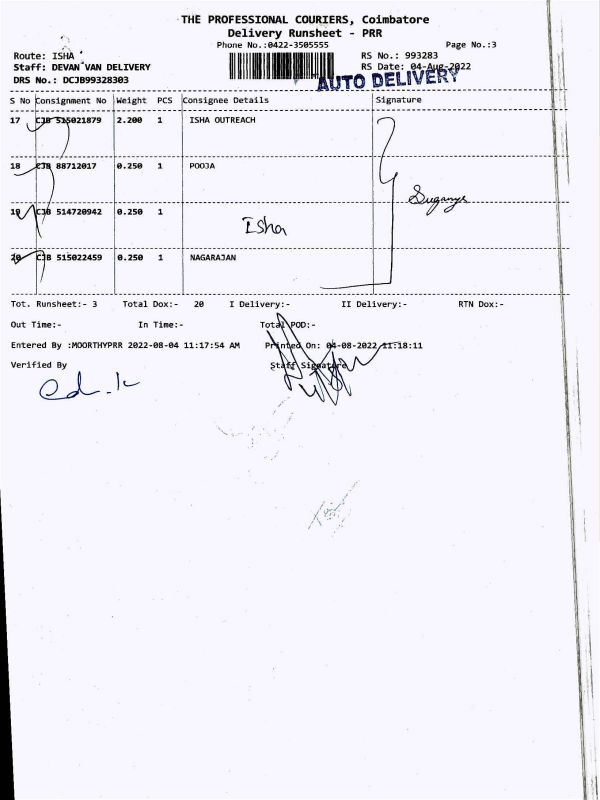 THE PROFESSIONAL COURIERS, Coimbatore
Delivery Runsheet - PRR
Phone No.:0422-3505555 Page No.:3
Route: ISHA RS No.: 993283
Staff: DEVAN VAN DELIVERY RS Date: 04-Aug-2022
DRS No.: DCJB99328303 AUTO DELIVERY
S No Consignment No Weight PCS Consignee Details Signature
17 CJB 515021879 2.200 1 ISHA OUTREACH
18 CJB 88712017 0.250 1 POOJA
Suganya
19 CJB 514720942 0.250 1
Isha
20 CJB 515022459 0.250 1 NAGARAJAN
Tot. Runsheet:- 3 Total Dox:- 20 I Delivery:- II Delivery:- RTN Dox:-
Out Time:- In Time:- Total POD:-
Entered By :MOORTHYPRR 2022-08-04 11:17:54 AM Printed On: 04-08-2022 11:18:11
Verified By Staff Signature